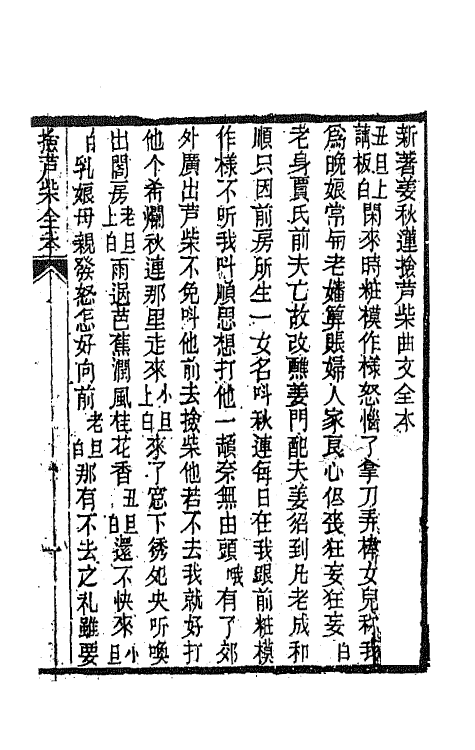 新著姜秋蓮撿芦柴曲文全本
丑旦上講板白閑來時粧模作樣怒惱了拿刀弄棒女兒称我
為晚娘常與老嬸算賬婦人家良心但喪狂妄狂妄白
老身賈氏前夫亡故改醮姜門配夫姜紹到凢老成和
順只因前房所生一女名呌秋連每日在我跟前粧模
作樣不听我呌順思想打他一頓奈無由頭哦有了郊
外廣出芦柴不免呌他前去撿柴他若不去我就好打
他个希爛秋連那里走來小旦上白來了窓下綉処央听喚
出閨房老旦上白雨过芭蕉潤風桂花香丑旦白還不快來小旦
白乳娘母親發怒怎好向前老旦白那有不去之礼雖要
撿芦柴全本
一